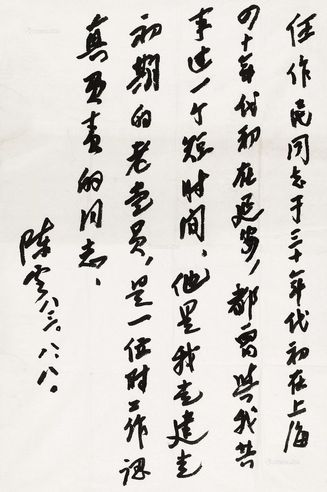 任作民同志于三十年代初在上海
四十年代初在延安，都曾与我共
事过一个短时间、他是我党建党
初期的老党员，是一位对工作认
真负责的同志、
陈云八三、八、八。